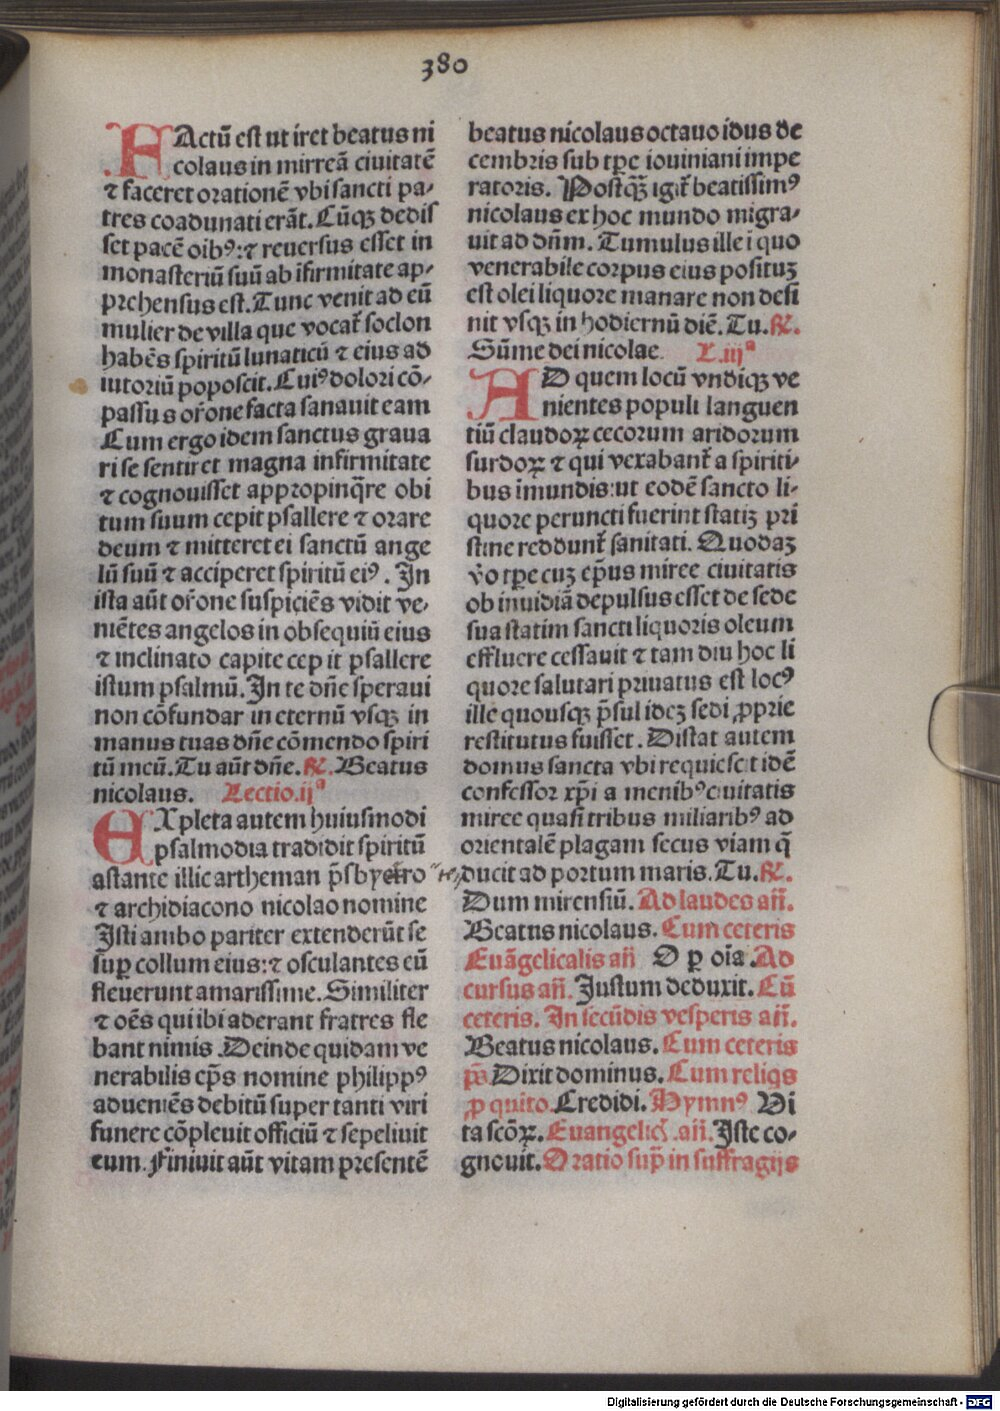 380
FActū est ut iret beatus ni
colaus in mirreā ciuitatē
⁊ faceret orationē vbi sancti pa⸗
tres coadunati erāt. Cūqꝫ dedis
set pacē oibꝰ:⁊ reuersus esset in
monasteriū suū ab īfirmitate ap⸗
prehensus est. Tunc venit ad eū
mulier de villa que vocat̄ soclon
habēs spiritū lunaticū ⁊ eius ad
iutoriū poposcit. Cuiꝰ dolori cō⸗
passus or̄one facta sanauit eam
Cum ergo idem sanctus graua
ri se sentiret magna infirmitate
⁊ cognouisset appropinq̄re obi
tum suum cepit psallere ⁊ orare
deum ⁊ mitteret ei sanctū ange
lū suū ⁊ acciperet spiritū eiꝰ. In
ista aūt or̄one suspiciēs vidit ve⸗
niētes angelos in obsequiū eius
⁊ inclinato capite cep it psallere
istum psalmū. In te dn̄e speraui
non cōfundar in eternū vsqꝫ in
manus tuas dn̄e cōmendo spiri
tū meū. Tu aūt dn̄e. ℟. Beatus
nicolaus. Lectio.ijᵃ
EXpleta autem huiusmodi
psalmodia tradidit spiritū
astante illic artheman p̄sbytero
⁊ archidiacono nicolao nomine
Isti ambo pariter extenderūt se
sup̄ collum eius:⁊ osculantes eū
fleuerunt amarissime. Similiter
⁊ oēs qui ibi aderant fratres fle
bant nimis. Deinde quidam ve
nerabilis ep̄s nomine philippꝰ
adueniēs debitū super tanti viri
funere cōpleuit officiū ⁊ sepeliuit
eum. Finiuit aūt vitam presentē
beatus nicolaus octauo idus de
cembris sub tp̄e iouiniani impe
ratoris. Postq̄ꝫ igit̄ beatissimꝰ
nicolaus ex hoc mundo migra⸗
uit ad dn̄m. Tumulus ille ī quo
venerabile corpus eius posituꝫ
est olei liquore manare non desi
nit vsqꝫ in hodiernū diē. Tu. ℟.
Sūme dei nicolae. L.iijᵃ
AD quem locū vndiqꝫ ve
nientes populi languen
tiū claudoꝝ cecorum aridorum
surdoꝝ ⁊ qui vexabant̄ a spiriti⸗
bus īmundis:ut eodē sancto li⸗
quore peruncti fuerint statiꝫ pri
stine reddunt̄ sanitati. Quodaꝫ
v̄o tp̄e cuꝫ ep̄us miree ciuitatis
ob inuidiā depulsus esset de sede
sua statim sancti liquoris oleum
effluere cessauit ⁊ tam diu hoc li
quore salutari priuatus est locꝰ
ille quousqꝫ p̄sul ideꝫ sedi ꝓprie
restitutus fuisset. Distat autem
domus sancta vbi requiescit idē
confessor xp̄i a menibꝰ ciuitatis
miree quasi tribus miliaribꝰ ad
orientalē plagam secus viam q̄
ducit ad portum maris. Tu. ℟.
Dum mirensiū. Ad laudes an̄.
Beatus nicolaus. Cum ceteris
Euāgelicalis an̄ O ꝑ oīa. Ad
cursus an̄. Justum deduxit. Cū
ceteris. In secūdis vesperis an̄.
Beatus nicolaus. Cum ceteris
ps̄. Dixit dominus. Cum reliqs
ꝓ quito. Credidi. Hymnꝰ Vi
ta scōꝝ. Euangelic̄ .an̄. Iste co⸗
gnouit. Oratio sup̄ in suffragijs
Digitalisierung gefördert durch die Deutsche Forschungsgemeinschaft - DFG